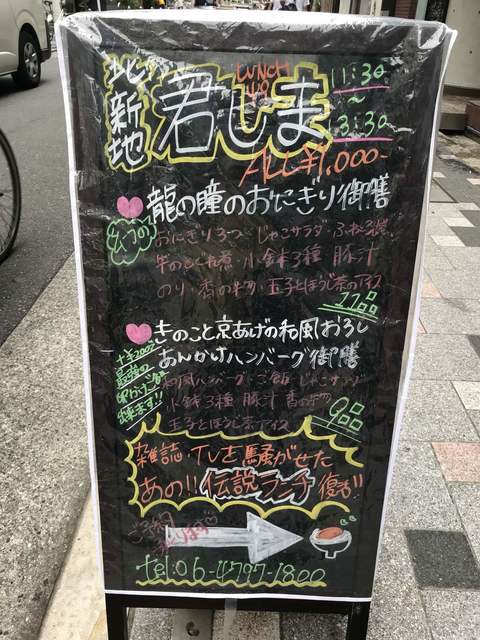 北新地
君しま
LUNCH
11:30
～
3:30
ALL¥1,000-
龍の瞳のおにぎり御膳
おにぎり3つ・じゃこサラダ・
牛のしぐれ煮・小鉢3種 豚汁
のり・香の物・玉子とほうじ茶のアイス
11品
きのこと京あげの和風おろし
あんかけハンバーグ御膳
和風ハンバーグ・ご飯・じゃこサラダ
小鉢3種 豚汁 香の物
玉子とほうじ茶アイス
9品
+¥200で
最強の
卵かけご飯
出来ます!!
雑誌 TVを騒がせた
あの!!伝説ランチ 復活!!
ご予約
承ります♡
tel:06-4797-1800